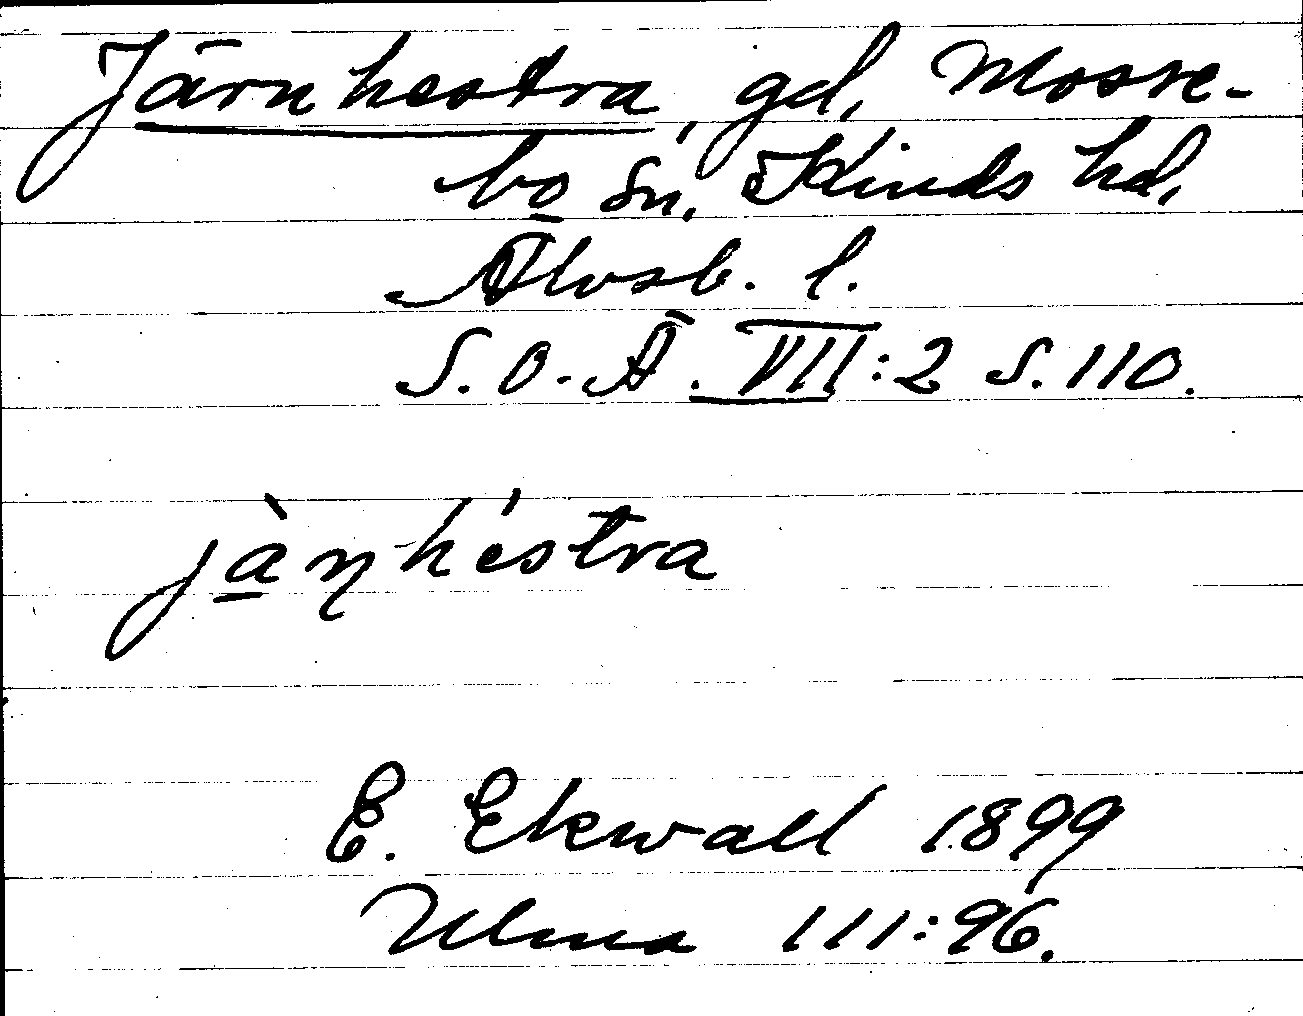 Järnhestra, gd, Mosse-
bo sn, Kinds hd,
Älvsb. l.
S.O.Ä. VII:2 S. 110.
jàṉhéstra
E. Ekwall 1899
Ulma 111:96.